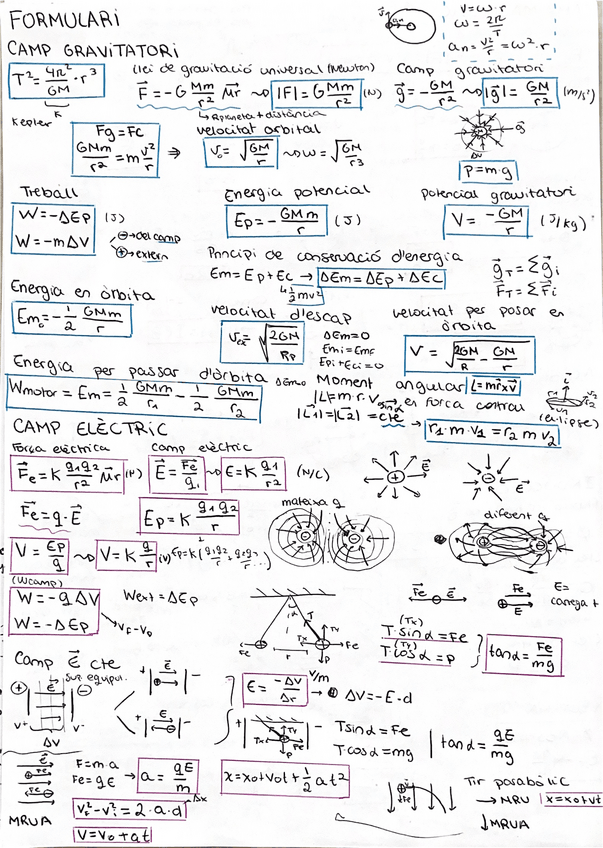 FORMULARI
V = ω · r
ω = 2π/T
an = v²/r = ω² · r
CAMP GRAVITATORI
T² = 4π²/GM · r³
K
Kepler
(llei de gravitació universal (Newton)
F = -G Mm/r² μr ~> |F| = G Mm/r² (N)
↳ R planeta + distància
Camp gravitatori
g = -GM/r² ~> |g| = GM/r² (m/s²)
Fg = Fc
GMm/r² = m v²/r ⇒
velocitat orbital
vo = √GM/r ~> ω = √GM/r³
p = m·g
Treball
W = -ΔEp (J)
W = -mΔV
⊖→ del camp
⊕→ extern
Energia potencial
Ep = -GMm/r (J)
potencial gravitatori
V = -GM/r (J/kg)
Principi de conservació d'energia
Em = Ep + Ec → ΔEm = ΔEp + ΔEc
↳ ½mv²
gT = Σgi
FT = ΣFi
Energia en òrbita
Emo = -1/2 GMm/r
velocitat d'escap
vex = √2GM/Rp
ΔEm = 0
Emi = Emf
Epi + Eci = 0
velocitat per posar en òrbita
V = √2GM/R - GM/r
Energia per passar d'òrbita ΔEm≠0
Wmotor = Em = 1/2 GMm/r1 - 1/2 GMm/r2
Moment angular L = mr×v
|L| = m·r·v sinα
|L1| = |L2| = cte → en força central
(el·lipse)
r1·m·v1 = r2 m v2
CAMP ELÈCTRIC
Força elèctrica
Fe = K q1q2/r² μr (N)
camp elèctric
E = Fe/q1 ~> E = K q1/r² (N/C)
E
E
Fe = q·E
Ep = K q1q2/r
mateixa q
diferent q
V = Ep/q ~> V = K q/r (V)
(Wcamp)
W = -qΔV
W = -ΔEp
Vf - Vo
Wext = ΔEp
Fe
T
Ty
Fe
P
r
Fe E
Fe
E
E =
càrrega +
(Tx)
T·sinα = Fe
(Ty)
T cosα = p
tanα = Fe/mg
Camp E cte
Sup equipo.
E
V+
V-
ΔV
+ E -
+ E -
E = -ΔV/Δr V/m
ΔV = -E·d
Tx
Ty
P
Tsinα = Fe
Tcosα = mg
tanα = qE/mg
E
Fe
F = m·a
Fe = qE
→ a = qE/m
x = xo + vot + 1/2 at²
Tir parabòlic
→ MRU x = xo + vt
↓ MRUA
MRUA
vf² - vi² = 2·a·d
Δx
V = Vo + at